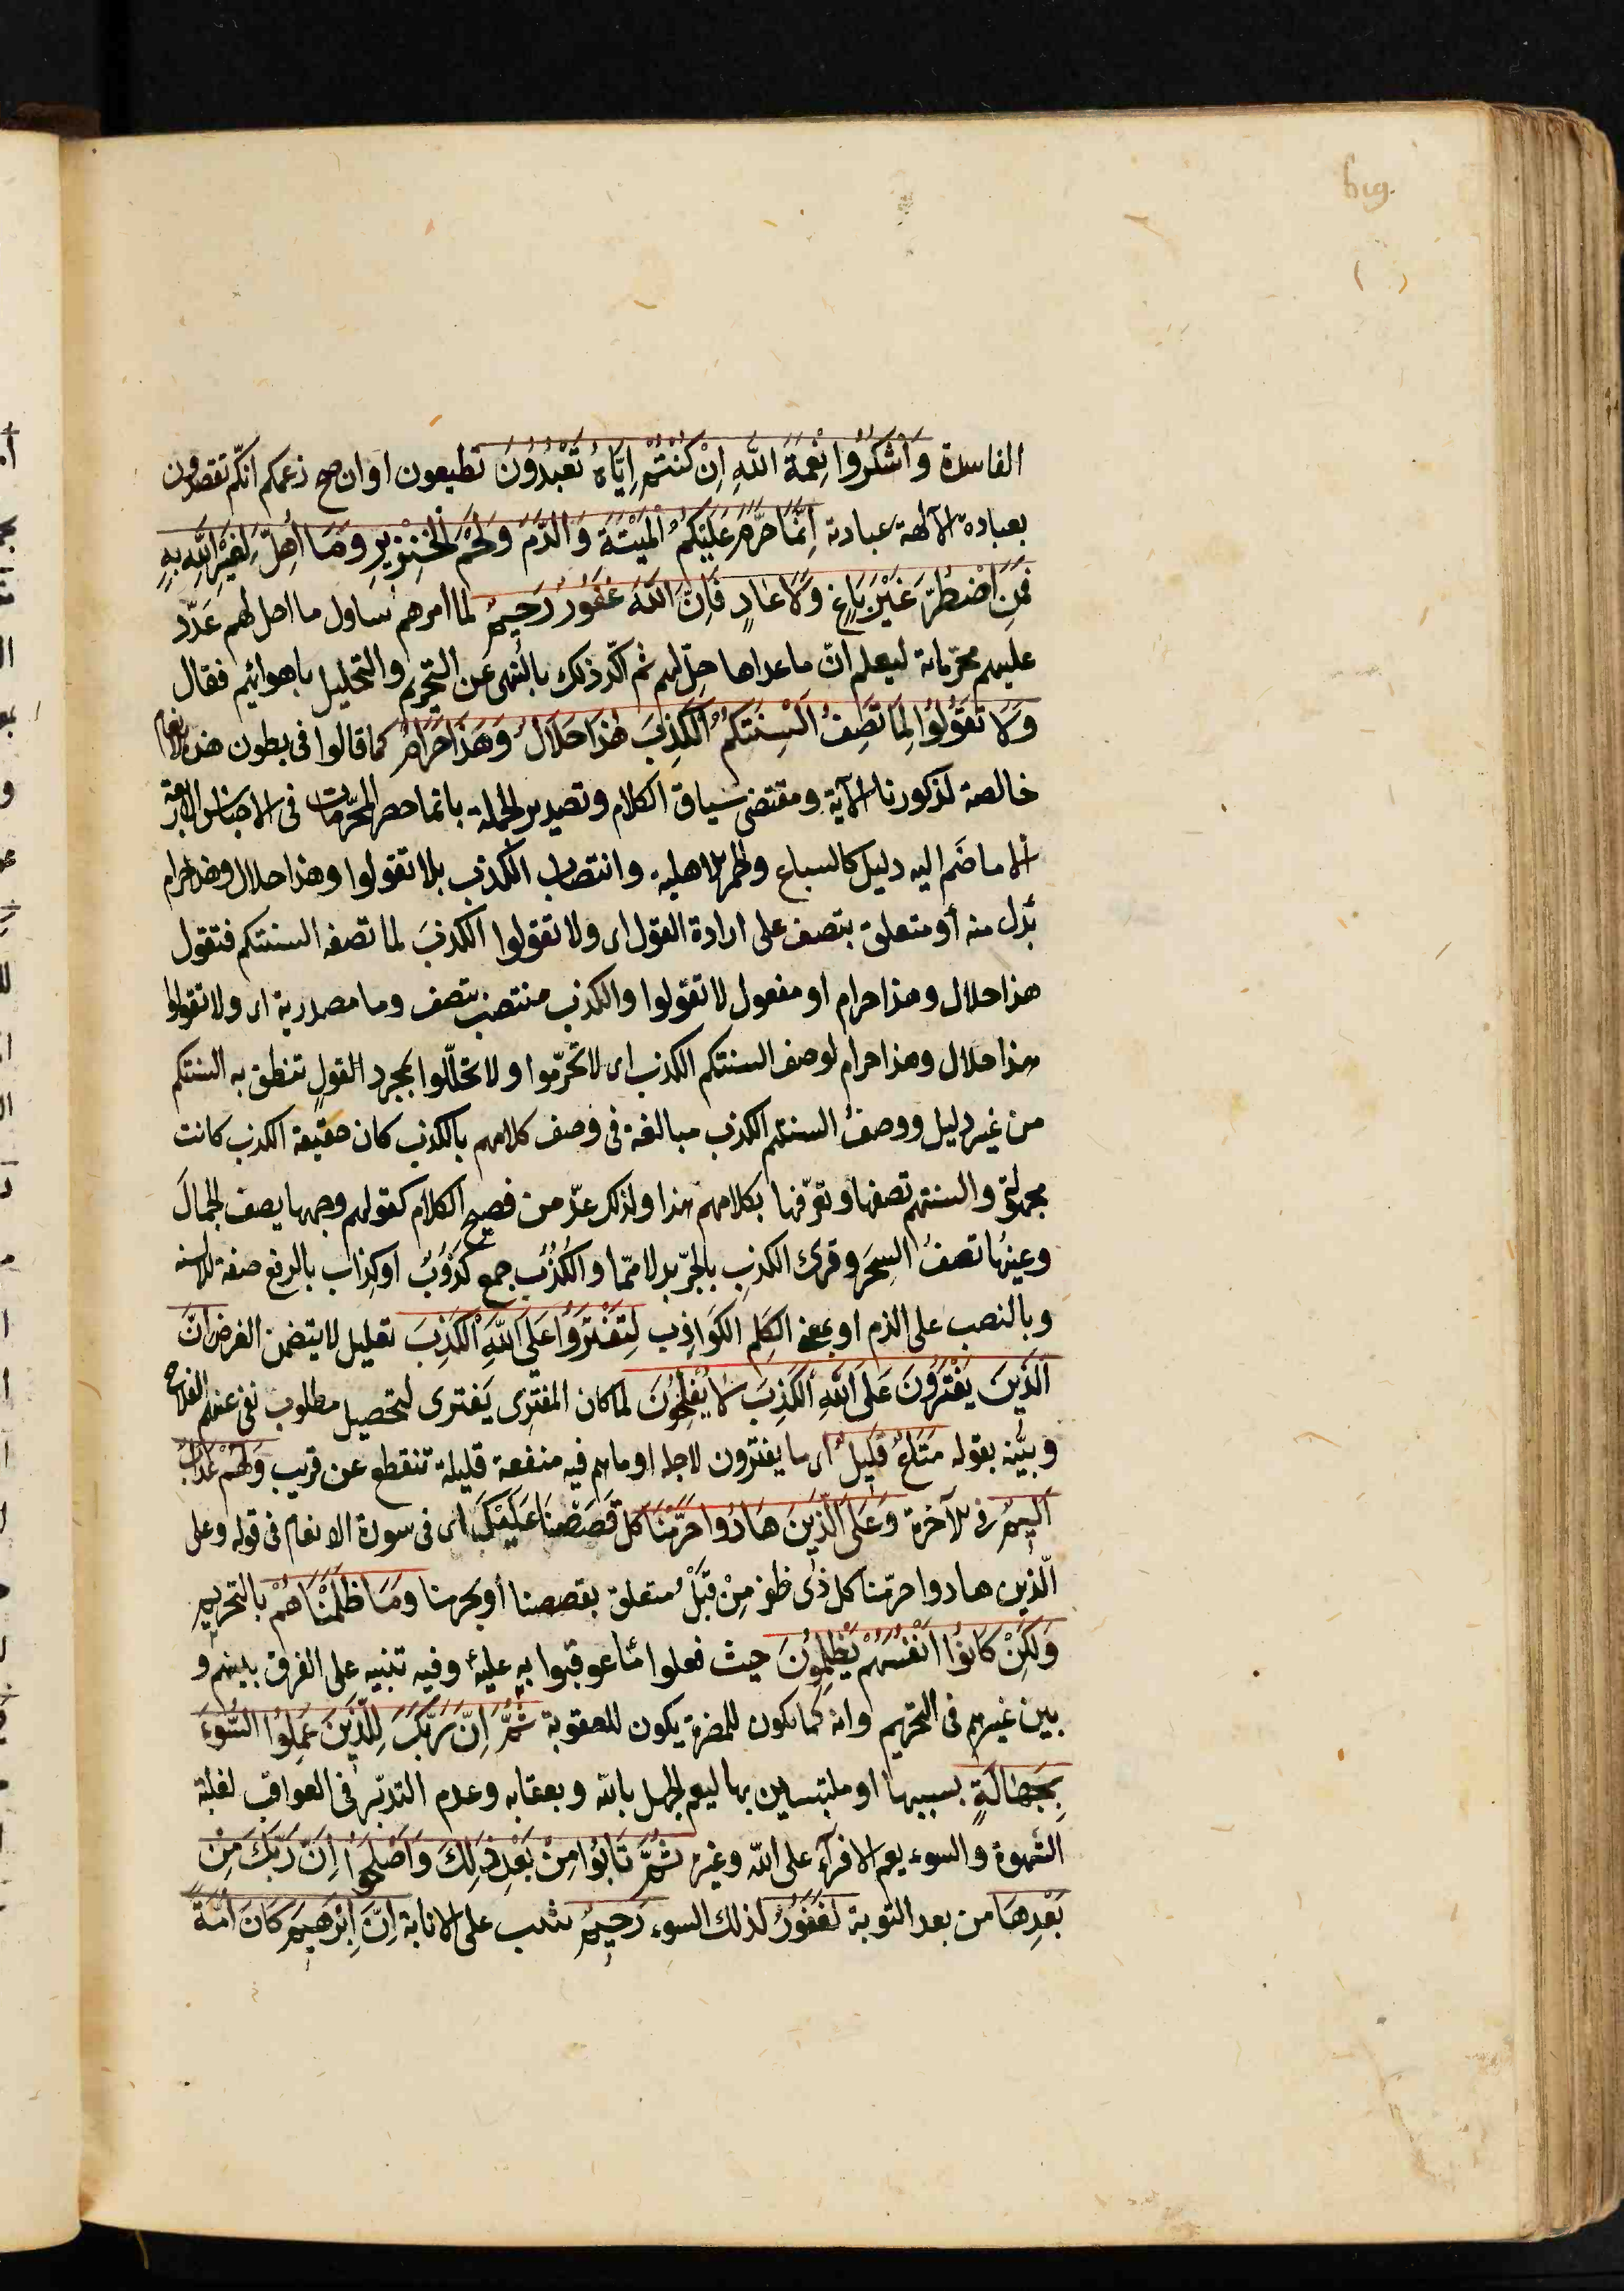 الفاسدة وَاَشْكُرُوا نِعْمَةَ اللهِ اِنْ كُنْتُمْ اِيَّاهُ تَعْبُدُونَ تطيعون او ان صح زعمكم انكم تقصدون
بعبادة الآلهة عبادته اِنَّمَا حَرَّمَ عَلَيْكُمُ الْمَيْتَةَ وَالدَّمَ وَلَحْمَ الْخِنْزِيرِ وَمَا اُهِلَّ لِغَيْرِ اللهِ بِهِ
فَمَنِ اضْطُرَّ غَيْرَ بَاغٍ وَلَا عَادٍ فَاِنَّ اللهَ غَفُورٌ رَحِيمٌ لما امرهم بتناول ما احل لهم عَدَّد
عليهم محرّماته ليعلم انّ ماعداها حِلّ لهم ثم اكّد ذلك بالنهى عن التحريم والتحليل باهوائهم فقال
وَلَا تَقُولُوا لِمَا تَصِفُ اَلْسِنَتُكُمُ الْكَذِبَ هٰذَا حَلَالٌ وَهَذَا حَرَامٌ كما قالوا فى بطون هذه الانعام
خالصة لذكورنا الآية ومقتضى سياق الكلام وتصدير الجملة بانما حصر المحرّمات فى الاجناس الاربعة
الا ما ضَم اليه دليل كالسباع والحمر الاهلية وانتصاب الكذب بلا تقولوا وهذا حلال وهذا حرام
بَدل منه أو متعلق بتصف على ارادة القول اى ولا تقولوا الكذبَ لما تصفه السنتكم فتقول
هذا حلال وهذا حرام او مفعول لا تقولوا والكذب منتصب بتصف وما مصدرية اى ولا تقولوا
هذا حلال وهذا حرام لوصف السنتكم الكذب اى لا تحرّموا ولا تحلّلوا بمجرد القولِ تنطق به السنتكم
من غير دليل ووصفُ السنتهم الكذب مبالغة فى وصف كلامهم بالكذب كان حقيقة الكذب كانت
مجهولة والسنتهم تصفها وتعرّفها بكلامهم هذا ولذلك عدّ من فصيح الكلام كقولهم وجهها يصف الجمالَ
وعينُها تصفُ السِحرَ وقرئ الكذبِ بالجرّ بدلا من ما والكُذُب جمع كَذُوبٌ او كِذاب بالرفع صفة للالسنة
وبالنصب على الذم او بمعنى الكَلِم الكَوَاذِب لِتَفْتَرُوا عَلَى اللهِ الْكَذِبَ تعليل لا يتضمن الغرض اِنَّ
الَّذِينَ يَفْتَرُونَ عَلَى اللهِ الْكَذِبَ لَا يُفْلِحُونَ لما كان المفترِى يَفترى لتحصيل مطلوب نفى عنهم الفلاح
وبيّنه بقوله مَتَاعٌ قَلِيلٌ اى ما يفترون لاجله او ما هم فيه منفعة قليلة تنقطع عن قريب وَلَهُمْ عَذَابٌ
اَلِيمٌ فى الآخرة وَعَلَى الَّذِينَ هَادُوا حَرَّمْنَا كل قَصَصْنَا عَلَيْكَ اى فى سورة الانعام فى قوله وعلى
الّذين هادوا حرّمنا كل ذى ظفر مِنْ قَبْلُ متعلق بقصصنا أو بحرمنا وَمَا ظَلَمْنَاهُمْ بالتحريم
وَلٰكِنْ كَانُوا اَنْفُسَهُمْ يَظْلِمُونَ حيث فعلوا مَا عوقبوا به عليه وفيه تنبيه على الفرق بينهم و
بين غيرهم فى التحريم وانه كما يكون للمضرة يكون للعقوبة ثُمَّ اِنَّ رَبَّكَ لِلَّذِينَ عَمِلُوا السُّوءَ
بِجَهَالَةٍ بسببها او ملتبسين بها ليعم الجهل بالله وبعقابه وعدم التدبّر فى العواقب لغلبة
الشهوة والسوء يعم الافتراء على الله وغيره ثُمَّ تَابُوا مِنْ بَعْدِ ذٰلِكَ وَاَصْلَحُوا اِنَّ رَبَّكَ مِنْ
بَعْدِهَا من بعد التوبة لَغَفُورٌ لذلك السوء رَحِيمٌ يثيب على الانابة اِنَّ اِبْرَهِيمَ كَانَ اُمَّةً